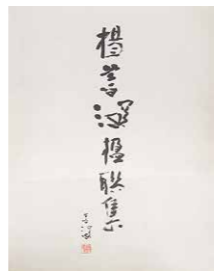 楊善深楹聯集
善深